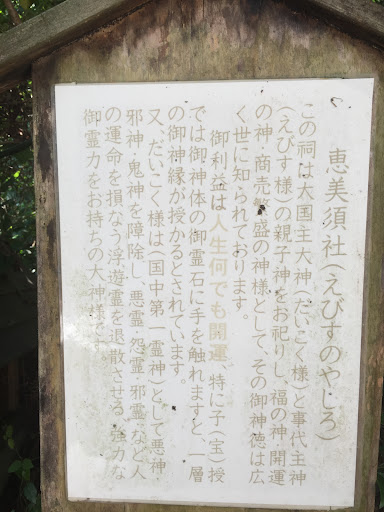 恵美須社(えびすのやしろ)
この祠は大国主大神(だいこく様)と事代主神
(えびす様)の親子神をお祀りし、福の神・開運
の神・商売繁盛の神様として、その御神徳は広
く世に知られております。
御利益は人生何でも開運、特に子(宝)授
では御神体の御霊石に手を触れますと、一層
の御神縁が授かるとされています。
又、だいこく様は(国中第一霊神)として悪神・
邪神・鬼神を障除し、悪霊・怨霊・邪霊など人
の運命を損なう浮遊霊を退散させる、強力な
御霊力をお持ちの大神様です。